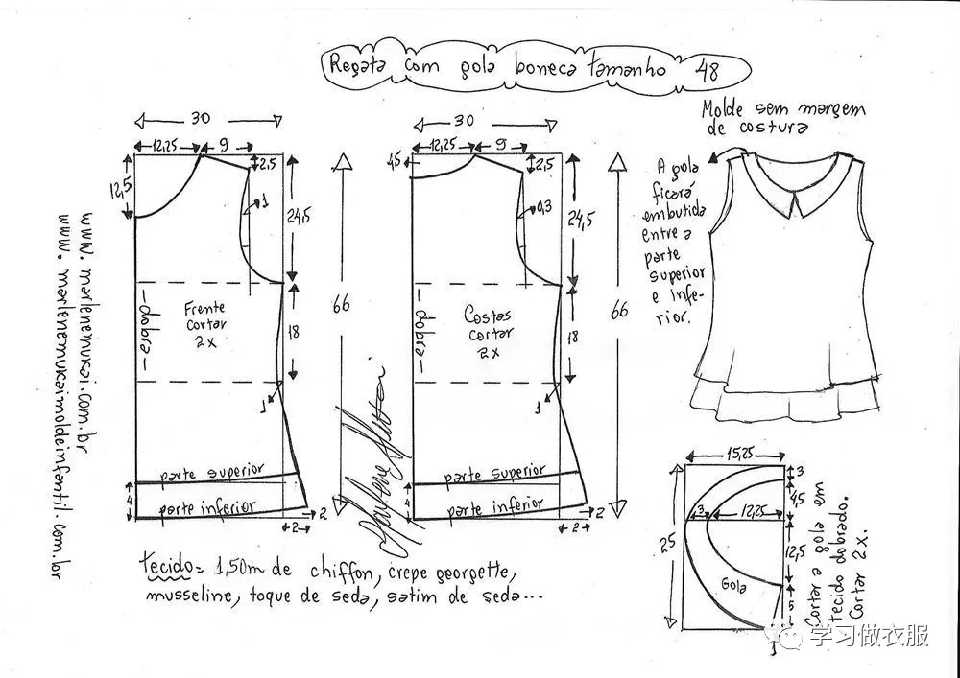 Regata com gola boneca tamanho 48
Molde sem margem
de costura
30
12,25
9
2,5
12,5
1
24,5
66
-dobra-
Frente
cortar
2x
18
1
parte superior
parte inferior
4
2
2
30
12,25
9
4,5
2,5
0,3
24,5
66
-dobra-
Costas
cortar
2x
18
1
parte superior
parte inferior
4
2
2
A gola
ficará
embutida
entre a
parte
superior
e infe-
rior.
www.marlenemukai.com.br
www.marlenemukaimoldeinfantil.com.br
tecido= 1,50m de chiffon, crepe georgette,
musseline, toque de seda, satim de seda...
15,25
3
4,5
3
12,25
25
12,5
Gola
5
1
Cortar a gola em
tecido dobrado.
Cortar 2x.
学习做衣服